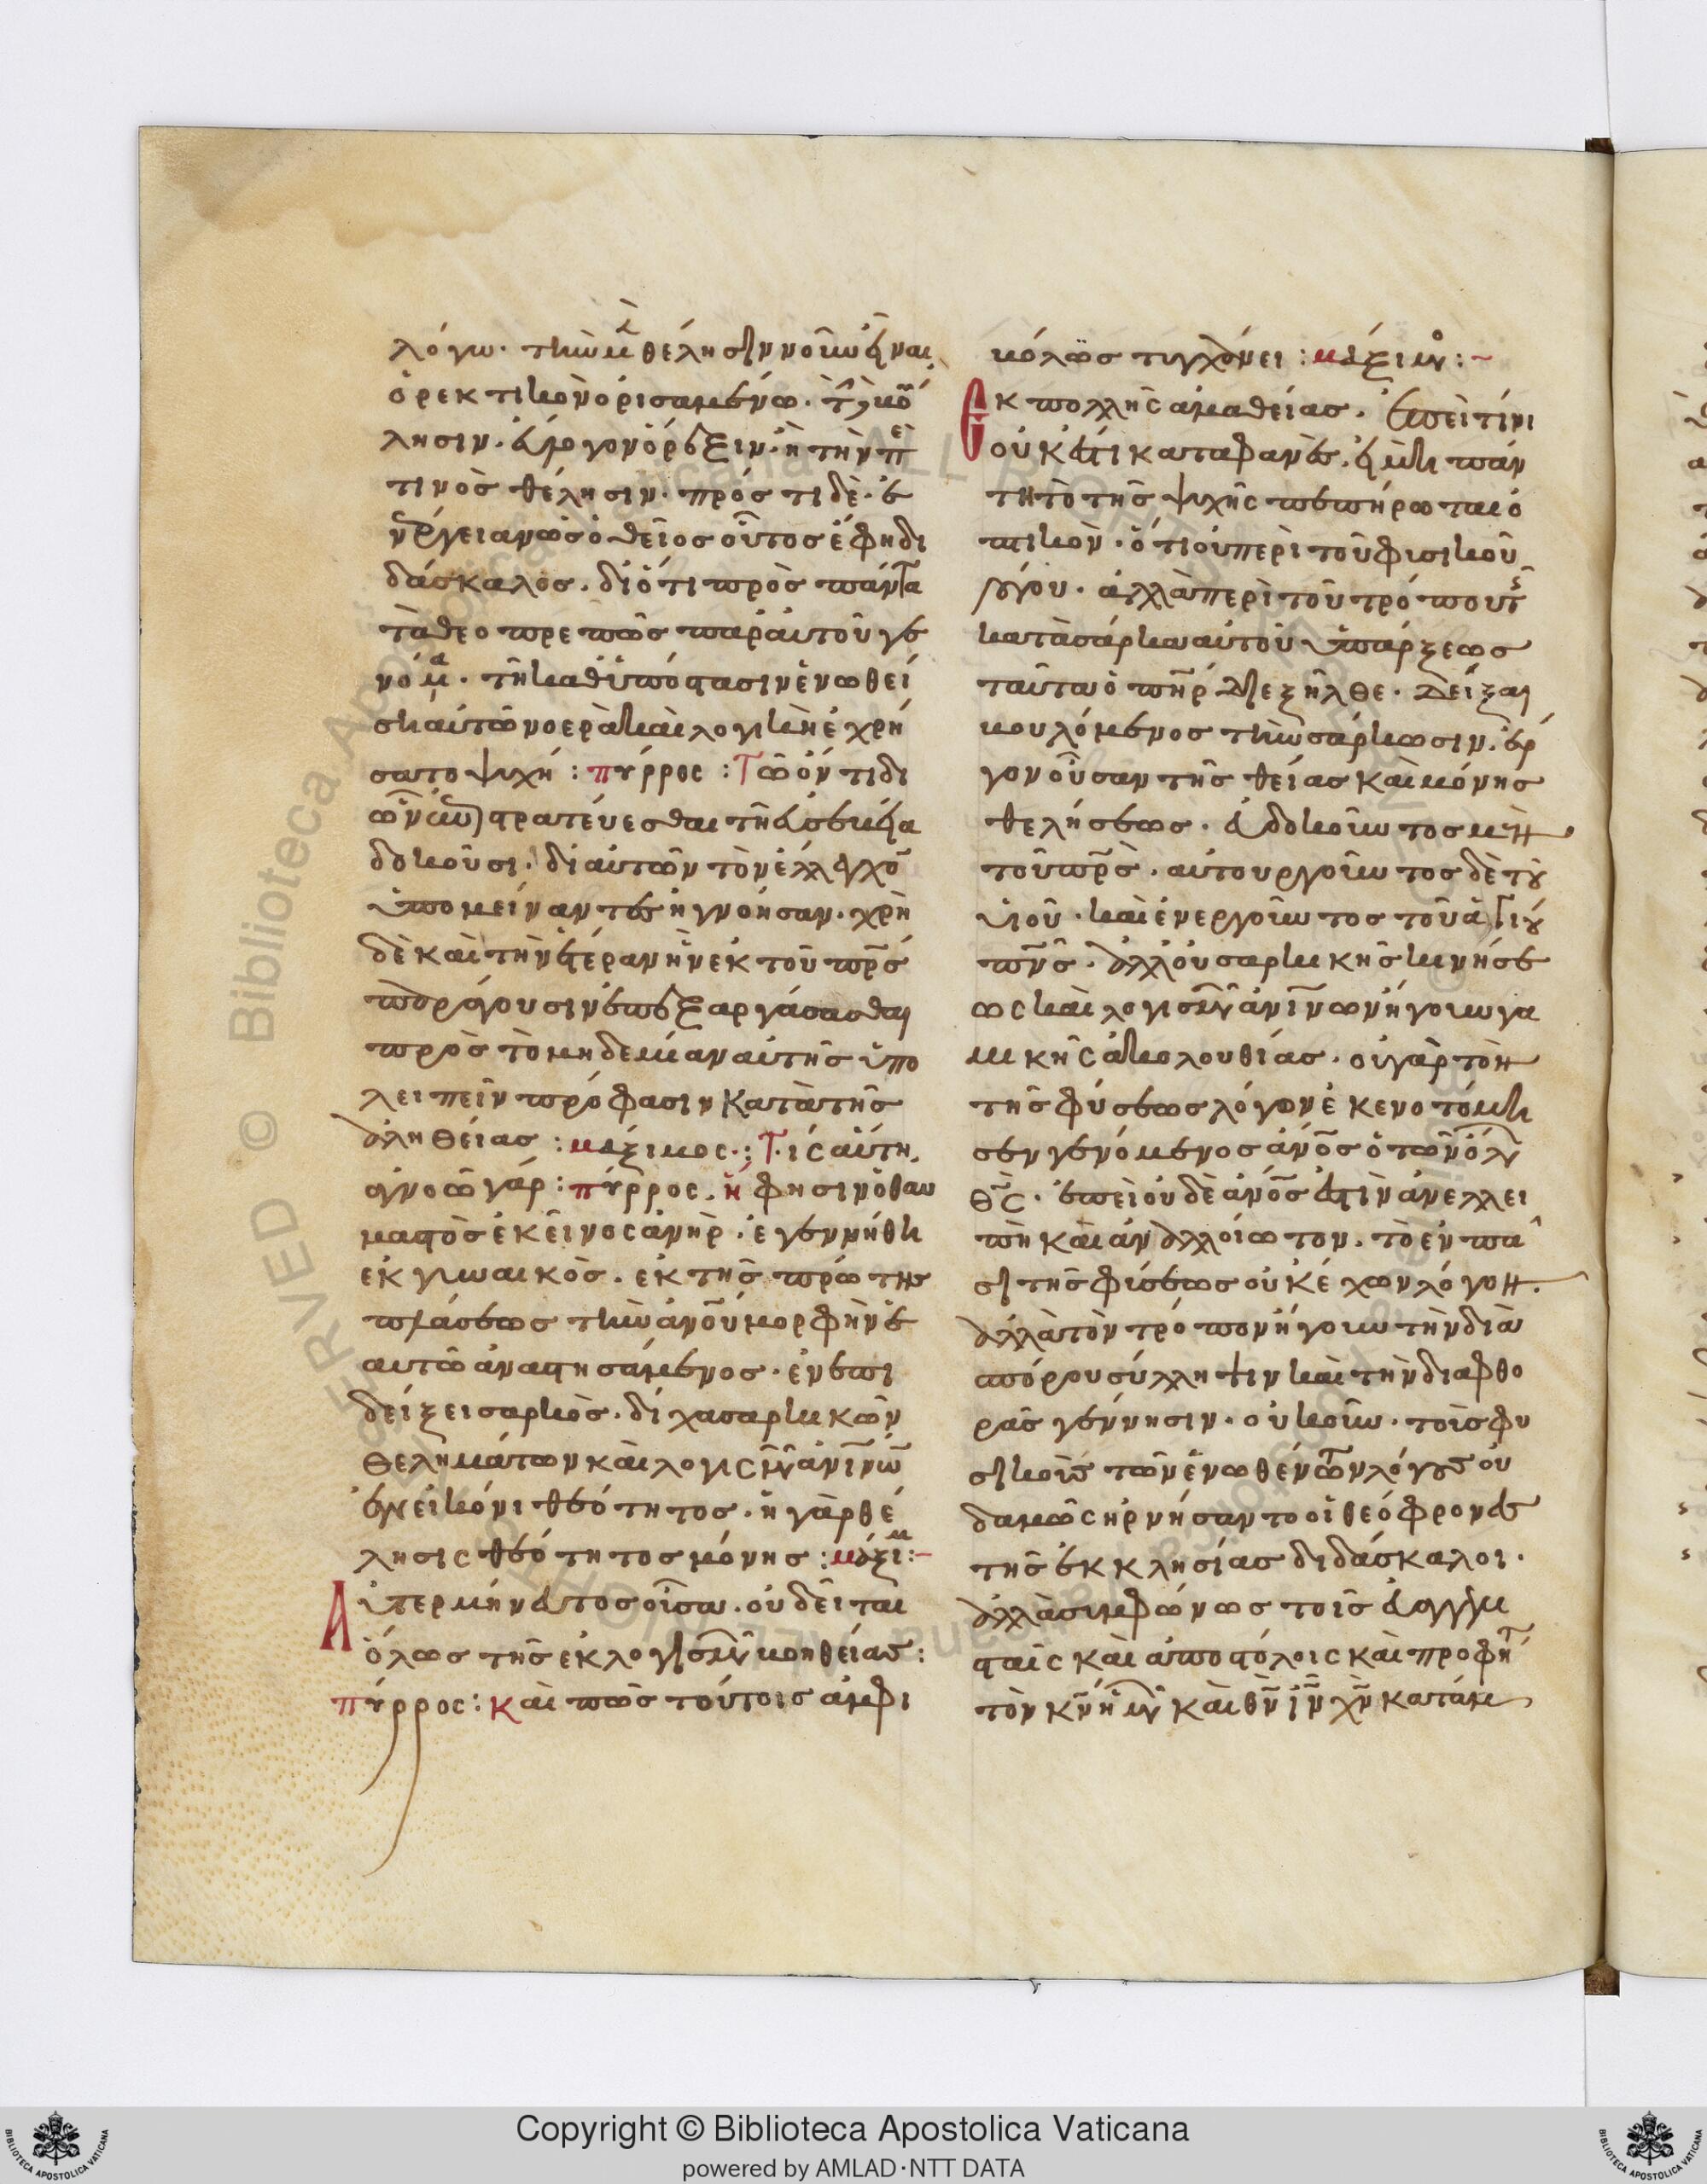 λόγω· τὴν μὲν θέλησιν νοῦν εἶναι
ὀρεκτικὸν ὁρισαμένω· τὴν δὲ βού
λησιν· ἄλογον ὄρεξιν· ἢ τὴν ἐπί
τινος θέλησιν· πρός τι δὲ· ἐ
νέργειαν ὡς ὁ θεῖος οὗτος ἔφη δι
δάσκαλος· διότι πρὸς πάντα
τὰ θεοπρεπῶς παρ' αὐτοῦ γε
νόμενα· τῇ καθ' ὑπόστασιν ἑνωθεί
σῃ αὐτῶ νοερᾷ καὶ λογικῇ ἐχρή
σατο ψυχῇ : πύρρος : Τῶ ὄντι δι
ὧν στρατεύεσθαι τῇ εὐσεβείᾳ
δοκοῦσι· δι' αὐτῶν τὸν ἔλεγχον
ὑπομείναντες ἠγνόησαν· χρὴ
δὲ καὶ τὴν ἑτέραν ἣν ἐκ τοῦ πρς
προάγουσιν ἐπεξεργάσασθαι
πρὸς τὸ μηδεμίαν αὐτῆς ὑπο
λειπεῖν πρόφασιν κατὰ τῆς
ἀληθείας : μάξιμος : Τίς αὕτη,
ἀγνοῶ γάρ : πύρρος. ἥ φησιν ὁ θαυ
μαστὸς ἐκεῖνος ἀνὴρ· ἐγεννήθη
ἐκ γυναικὸς· ἐκ τῆς πρώτης
πλάσεως τὴν ἀνου μορφὴν ἐ
αυτῶ ἀναστησάμενος· ἐν ἐπι
δείξει σαρκὸς· δίχα σαρκικῶν
θελημάτων καὶ λογισμῶν ἀνίνων
ἐν εἰκόνι θεότητος· ἡ γὰρ θέ
λησις θεότητος μόνης : μάξιμ :
Αὐτερμήνευτος οὖσα· οὐ δεῖται
ὅλως τῆς ἐκ λογισμῶν βοηθείας :
πύρρος : καὶ πῶς τούτοις ἀμφι
βόλως τυγχάνει : μάξιμος :
Εκ πολλῆς ἀμαθείας. ἐπεὶ τίνι
οὐκ ἔστι καταφανὲς· εἰ μὴ πάν
τη τὸ τῆς ψυχῆς πεπήρωται ὀ
πτικὸν· ὅτι οὐ περὶ τοῦ φυσικοῦ
λόγου· ἀλλὰ περὶ τοῦ τρόπου τῆς
κατὰ σάρκα αὐτοῦ ὑπάρξεως
ταῦτα ὁ πηρ διεξῆλθε· Δεῖξαι
βουλόμενος τὴν σάρκωσιν· ἔρ
γον οὖσαν τῆς θείας καὶ μόνης
θελήσεως· εὐδοκοῦντος μὲν
τοῦ πρς· αὐτουργοῦντος δὲ τοῦ
υἱοῦ· καὶ συνεργοῦντος τοῦ ἁγίου
πνς· ἀλλ' οὐ σαρκικῆς κινήσε
ως καὶ λογισμῶν ἀνίνων ἤγουν γα
μικῆς ἀκολουθίας· οὐ γὰρ τὸν
τῆς φύσεως λόγον ἐκενοτόμη
σεν γενόμενος ἀνος ὁ τῶν ὅλων
θς· ἐπεὶ οὐδὲ ἀνος ἔστιν ἀνελλει
πῆ καὶ ἀναλλοίωτον· τὸ ἐν πᾶ
σι τῆς φύσεως οὐκ ἔχων λόγον·
ἀλλὰ τὸν τρόπον ἤγουν τὴν διὰ
σπόρου σύλληψιν καὶ τὴν διὰ φθο
ρᾶς γέννησιν· οὐκοῦν· τοὺς φυ
σικοὺς τῶν ἑνωθέντων λόγους οὐ
δαμῶς ἠρνήσαντο οἱ θεόφρονες
τῆς ἐκκλησίας διδάσκαλοι·
ἀλλὰ συμφώνως τοῖς εὐαγγελι
σταῖς καὶ ἀποστόλοις καὶ προφήτ
τὸν κν ἡμῶν καὶ θν ιν χν κατάμ
Copyright © Biblioteca Apostolica Vaticana
powered by AMLAD·NTT DATA